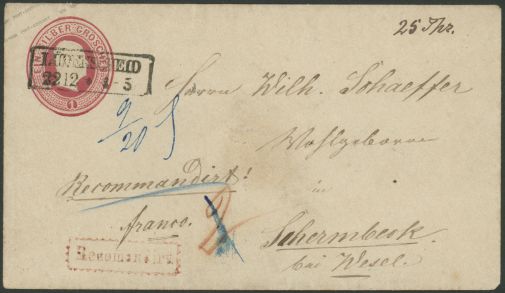 25 Thr.
EIN SILBER GROSCHEN
1
LÜDENSCHEID
22 12 4-5
Herrn Wilh. Schaeffer
Wohlgeboren
in
Schermbeck.
bei Wesel.
9/20
Recommandirt!
franco.
2
Recomandirt